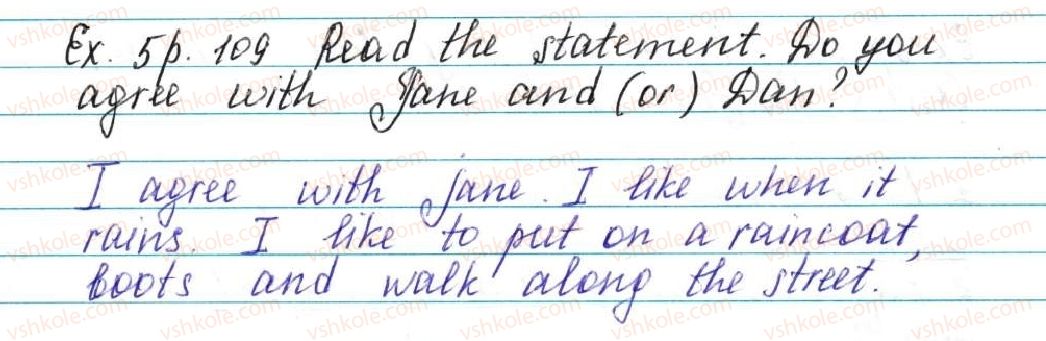 Ex. 5 p. 109 Read the statement. Do you
agree with Jane and (or) Dan?
I agree with Jane. I like when it
rains. I like to put on a raincoat,
boots and walk along the street.